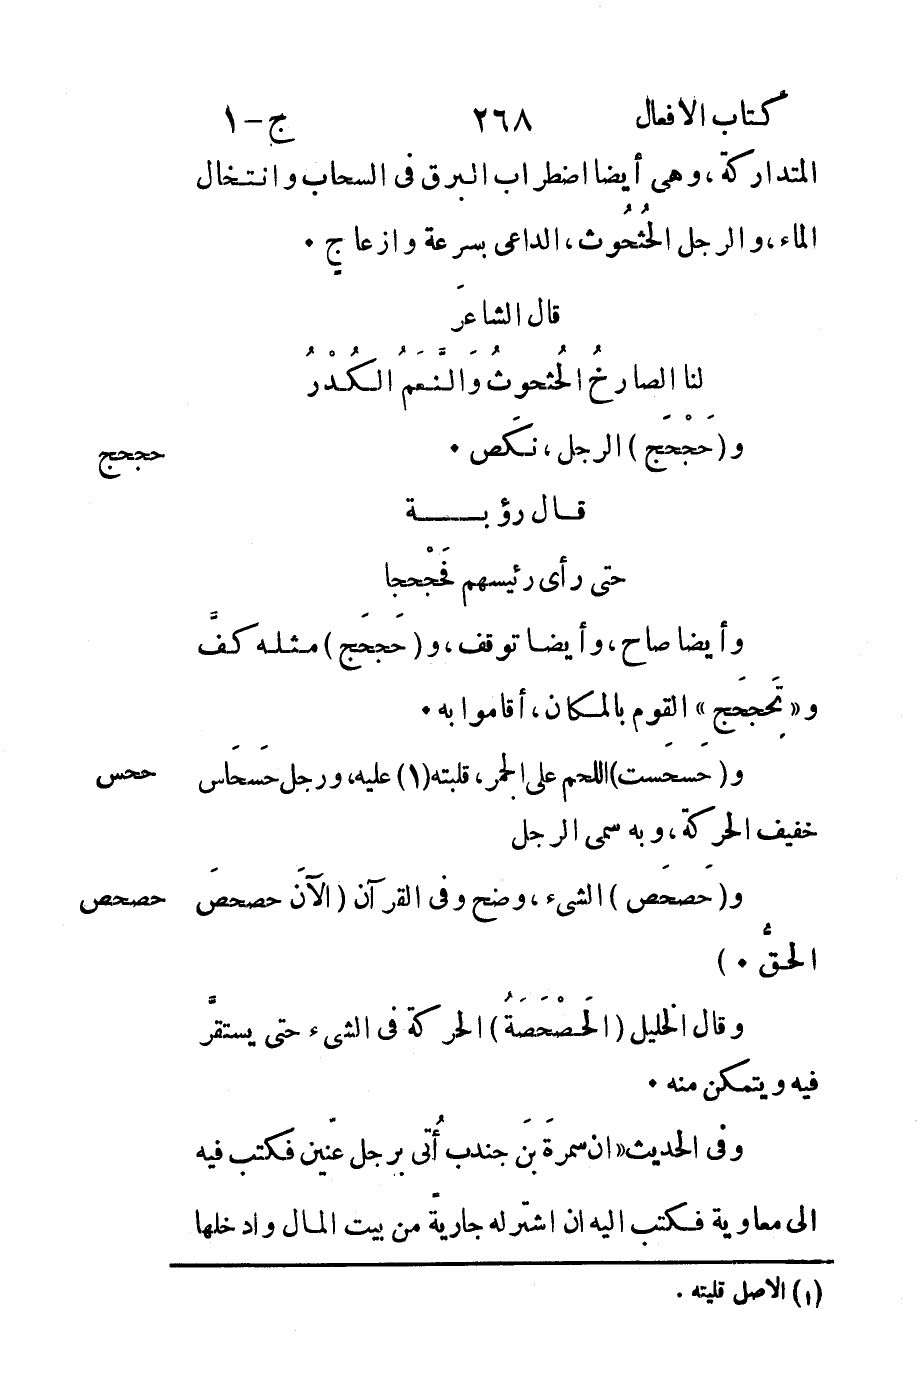 كتاب الافعال ٢٦٨ ج-١
المتداركة، وهى أيضا اضطراب البرق فى السحاب وانتخال
الماء، والرجل الحُثحُوث، الداعى بسرعة وازعاج ٠
قال الشاعر
لنا الصارخُ الحُثحوثُ وَالنَّعَمُ الكُدْرُ
و (حَجْحَج) الرجل، نكَص ٠ حجحج
قال رؤبة
حتى رأى رئيسهم فَحَجْحجا
وأيضا صاح، وأيضا توقف، و (حَجحَج) مثله كفَّ
و«تَحجحَج» القوم بالمكان، أقاموا به ٠
و (حَسحَست) اللحم على الجمر، قلبته (١) عليه، ورجل حَسحَاس ححس
خفيف الحركة، وبه سمى الرجل
و (حَصحَص) الشىء، وضح وفى القرآن (الآنَ حصحصَ حصحص
الحقُّ ٠)
وقال الخليل (الحَصْحَصَةُ) الحركة فى الشىء حتى يستقرَّ
فيه ويتمكن منه ٠
وفى الحديث «ان سمرةَ بنَ جندب أُتى برجل عنّين فكتب فيه
الى معاوية فكتب اليه ان اشتر له جاريةً من بيت المال وادخلها
(١) الاصل قليته .